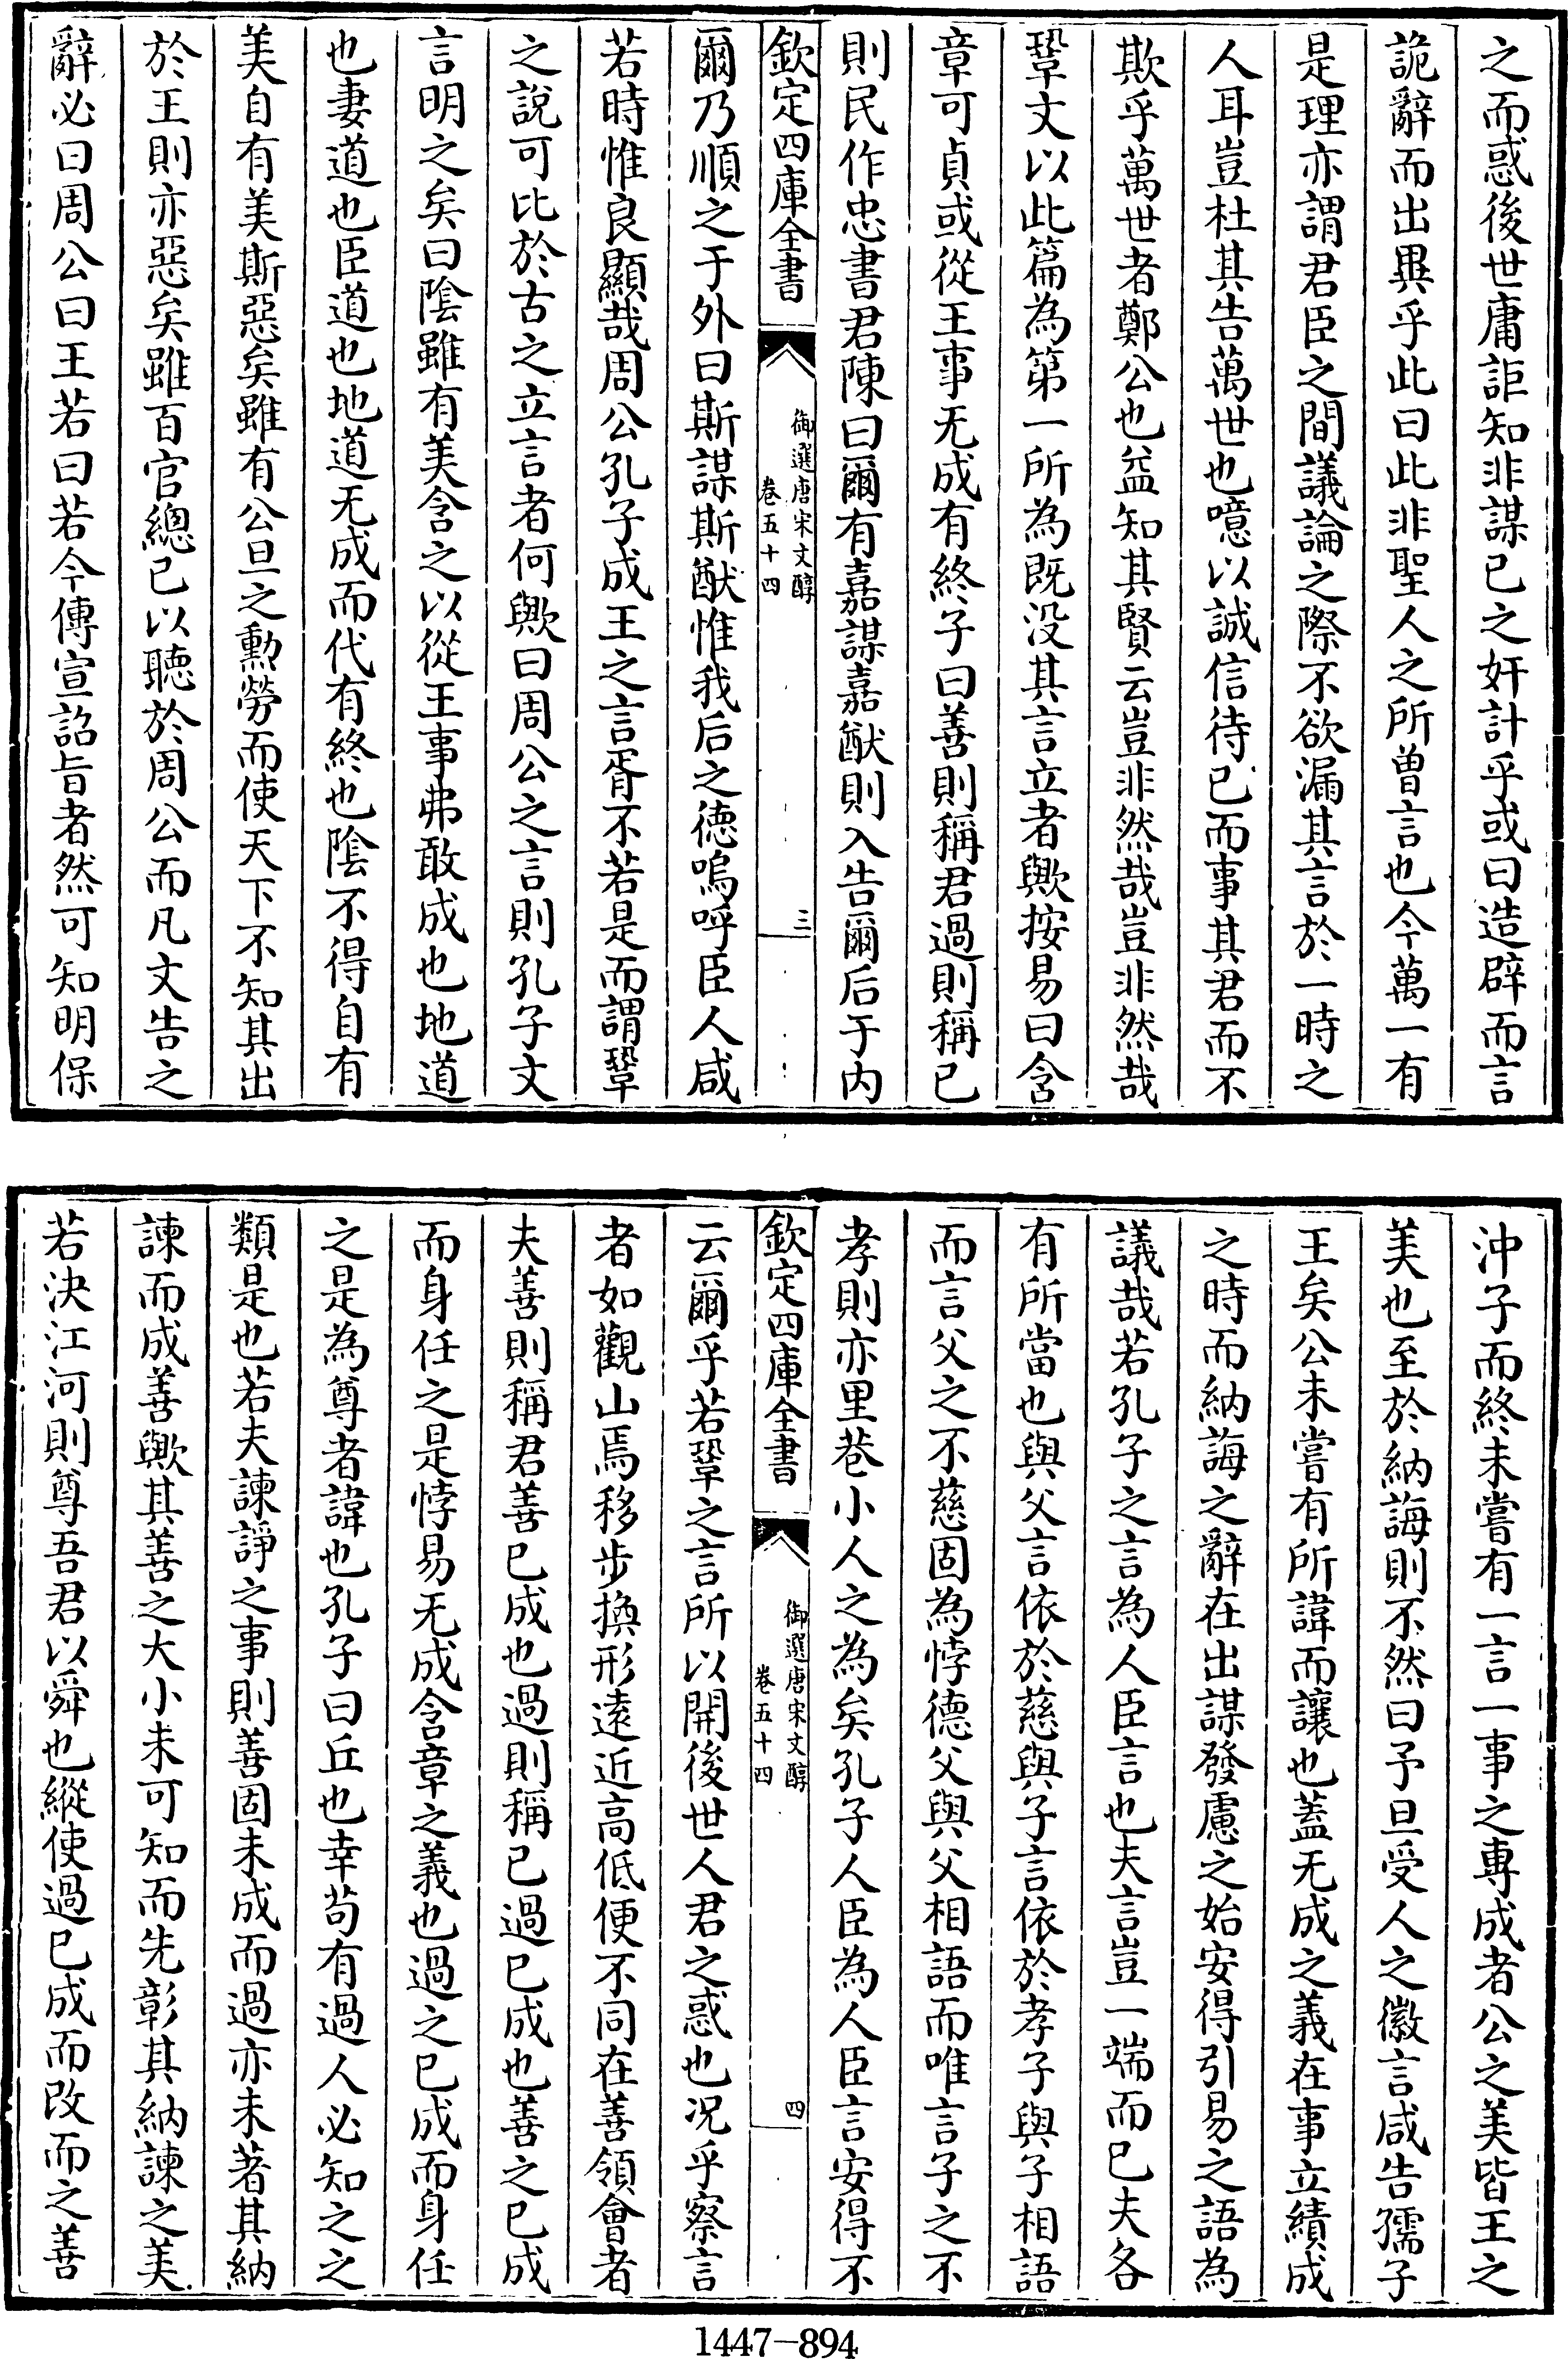 之而惑後世庸詎知非謀已之奸計乎或曰造辟而言
詭辭而出異乎此曰此非聖人之所曾言也今萬一有
是理亦謂君臣之間議論之際不欲漏其言於一時之
人耳豈杜其告萬世也噫以誠信待已而事其君而不
欺乎萬世者鄭公也益知其賢云豈非然哉豈非然哉
鞏文以此篇為第一所為既没其言立者歟按易曰含
章可貞或從王事无成有終子曰善則稱君過則稱已
則民作忠書君陳曰爾有嘉謀嘉猷則入告爾后于内
欽定四庫全書
御選唐宋文醇
卷五十四
三
爾乃順之于外曰斯謀斯猷惟我后之德嗚呼臣人咸
若時惟良顯哉周公孔子成王之言胥不若是而謂鞏
之說可比於古之立言者何歟曰周公之言則孔子文
言明之矣曰陰雖有美含之以從王事弗敢成也地道
也妻道也臣道也地道无成而代有終也陰不得自有
美自有美斯惡矣雖有公旦之勳勞而使天下不知其出
於王則亦惡矣雖百官總已以聽於周公而凡文告之
辭必曰周公曰王若曰若今傳宣詔旨者然可知明保
沖子而終未嘗有一言一事之專成者公之美皆王之
美也至於納誨則不然曰予旦受人之徽言咸告孺子
王矣公未嘗有所諱而讓也蓋无成之義在事立績成
之時而納誨之辭在出謀發慮之始安得引易之語為
議哉若孔子之言為人臣言也夫言豈一端而已夫各
有所當也與父言依於慈與子言依於孝子與子相語
而言父之不慈固為悖德父與父相語而唯言子之不
孝則亦里巷小人之為矣孔子人臣為人臣言安得不
欽定四庫全書
御選唐宋文醇
卷五十四
四
云爾乎若鞏之言所以開後世人君之惑也况乎察言
者如觀山焉移步換形遠近高低便不同在善領會者
夫善則稱君善已成也過則稱已過已成也善之已成
而身任之是悖易无成含章之義也過之已成而身任
之是為尊者諱也孔子曰丘也幸苟有過人必知之之
類是也若夫諫諍之事則善固未成而過亦未著其納
諫而成善歟其善之大小未可知而先彰其納諫之美
若決江河則尊吾君以舜也縱使過已成而改而之善
1447—894